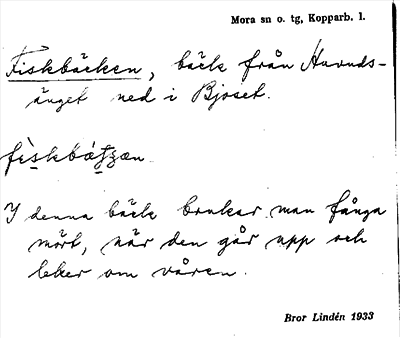 Mora sn o. tg, Kopparb. l.
Fiskbäcken, bäck från Hunds-
änget ned i Bjoset.
I denna bäck brukar man fånga
mört, när den går upp och
leker om våren.
Bror Lindén 1933